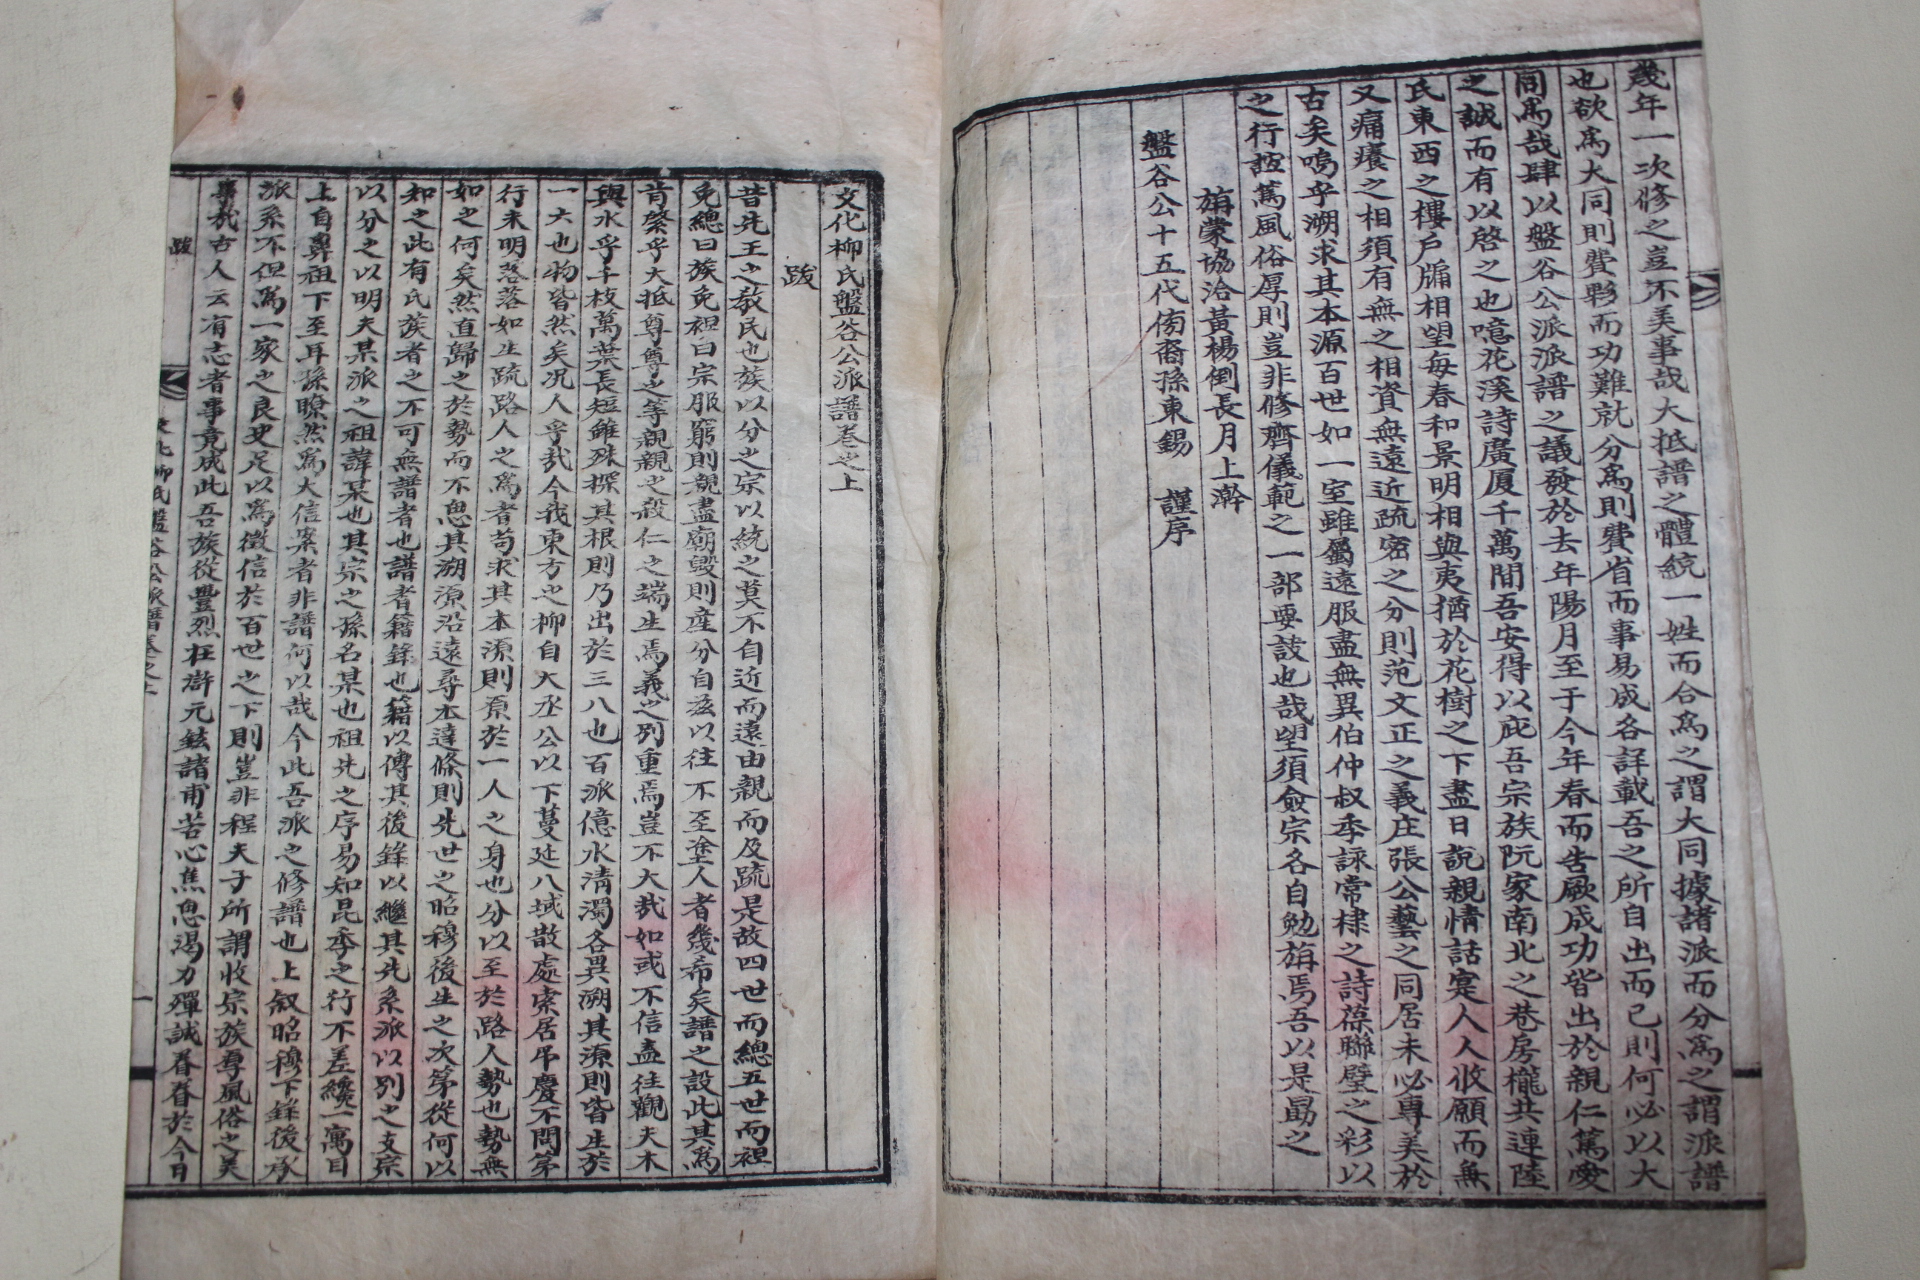 幾年一次修之豈不美事哉大抵譜之體統一姓而合爲之謂大同據諸派而分爲之謂派譜
也欲爲大同則費夥而功難就分爲則費省而事易成各詳載吾之所自出而已則何必以大
同爲哉肆以盤谷公派派譜之議發於去年陽月至于今年春而告厥成功皆出於親仁篤愛
之誠而有以啓之也噫花溪詩廣厦千萬間吾安得以庇吾宗族阮家南北之巷房櫳共連陸
氏東西之樓戶牖相望每春和景明相與夷猶於花樹之下盡日說親情話寔人人攸願而無
又痛癢之相須有無之相資無遠近疏密之分則范文正之義庄張公藝之同居未必專美於
古矣嗚乎溯求其本源百世如一室雖屬遠服盡無異伯仲叔季詠常棣之詩葆聯璧之彩以
之行誼篤風俗厚則豈非修齊儀範之一部要諓也哉望須僉宗各自勉旃焉吾以是勗之
旃蒙協洽黃楊倒長月上澣
盤谷公十五代傍裔孫東錫 謹序
文化柳氏盤谷公派譜卷之上
跋
昔先王之敎民也族以分之宗以統之莫不自近而遠由親而及疏是故四世而總五世而袒
免總曰族免袒曰宗服窮則親盡廟毀則産分自玆以往不至塗人者幾希矣譜之設此其爲
肯綮乎大抵尊尊之等親親之殺仁之端生焉義之別重焉豈不大哉如或不信盍往觀夫木
與水乎千枝萬葉長短雖殊探其根則乃出於三八也百派億水淸濁各異溯其源則皆生於
一六也物皆然矣况人乎哉今我東方之柳自大丞公以下蔓延八域散處索居吊慶不問第
行未明落落如生疏路人之爲者苟求其本源則原於一人之身也分以至於路人勢也勢無
如之何矣然直歸之於勢而不思其溯源沿遠尋本達條則先世之昭穆後生之次第從何以
知之此有氏族者之不可無譜者也譜者籍錄也籍以傳其後錄以繼其先系派以別之支宗
以分之以明夫某派之祖諱某也其宗之孫名某也祖先之序易知昆季之行不差纔一寓目
上自鼻祖下至耳孫瞭然爲大信案者非譜何以哉今此吾派之修譜也上叙昭穆下錄後承
派系不但爲一家之良史足以爲徵信於百世之下則豈非程夫子所謂收宗族專風俗之美
事哉古人云有志者事竟成此吾族從豐烈在澔元鉉諸甫苦心焦思渴力殫誠眷眷於今日
跋
文化柳氏盤谷公派譜卷之上
一